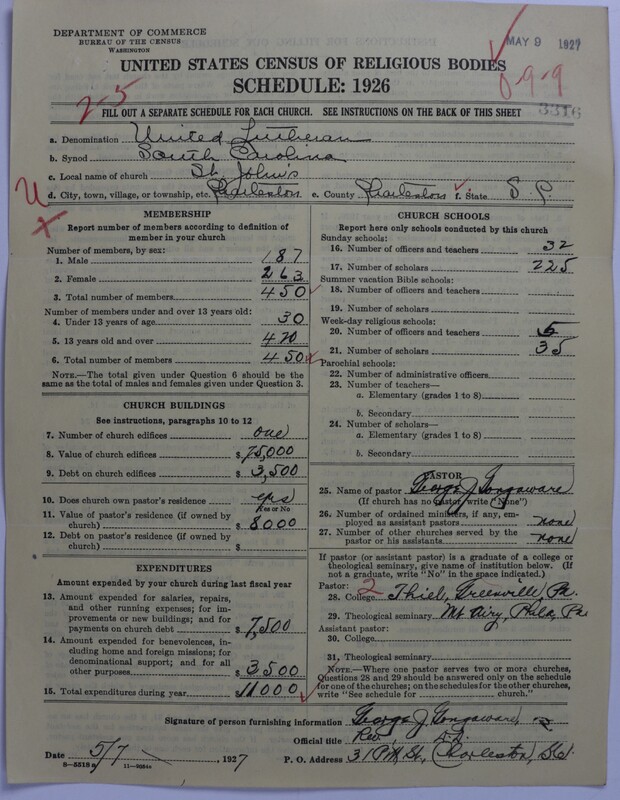 DEPARTMENT OF COMMERCE
BUREAU OF THE CENSUS
WASHINGTON
MAY 9 1927
UNITED STATES CENSUS OF RELIGIOUS BODIES
SCHEDULE: 1926
0-9-9
2-5
3316
FILL OUT A SEPARATE SCHEDULE FOR EACH CHURCH. SEE INSTRUCTIONS ON THE BACK OF THIS SHEET
a. Denomination United Lutheran
b. Synod South Carolina
c. Local name of church St. John's
d. City, town, village, or township, etc. Charleston e. County Charleston f. State S. C.
MEMBERSHIP
Report number of members according to definition of
member in your church
Number of members, by sex:
1. Male 187
2. Female 263
3. Total number of members 450
Number of members under and over 13 years old:
4. Under 13 years of age 30
5. 13 years old and over 420
6. Total number of members 450
NOTE.—The total given under Question 6 should be
same as the total of males and females given under Question 3.
CHURCH BUILDINGS
See instructions, paragraphs 10 to 12
7. Number of church edifices one
8. Value of church edifices $ 75,000
9. Debt on church edifices $ 3,500
10. Does church own pastor's residence yes
Yes or No
11. Value of pastor's residence (if owned by
church) $ 8000
12. Debt on pastor's residence (if owned by
church) $
EXPENDITURES
Amount expended by your church during last fiscal year
13. Amount expended for salaries, repairs,
and other running expenses; for im-
provements or new buildings; and for
payments on church debt $ 7,500
14. Amount expended for benevolences, in-
cluding home and foreign missions; for
denominational support; and for all
other purposes $ 3500
15. Total expenditures during year $ 11000
CHURCH SCHOOLS
Report here only schools conducted by this church
Sunday schools:
16. Number of officers and teachers 32
17. Number of scholars 225
Summer vacation Bible schools:
18. Number of officers and teachers
19. Number of scholars
Week-day religious schools:
20. Number of officers and teachers 5
21. Number of scholars 35
Parochial schools:
22. Number of administrative officers
23. Number of teachers—
a. Elementary (grades 1 to 8)
b. Secondary
24. Number of scholars—
a. Elementary (grades 1 to 8)
b. Secondary
PASTOR
25. Name of pastor George J. Gongaware
(If church has no pastor, write "None")
26. Number of ordained ministers, if any, em-
ployed as assistant pastors none
27. Number of other churches served by the
pastor or his assistants none
If pastor (or assistant pastor) is a graduate of a college or
theological seminary, give name of institution below. (If
not a graduate, write "No" in the space indicated.)
Pastor: 2
28. College Thiel, Greenville, Pa.
29. Theological seminary Mt Airy, Phila, Pa
Assistant pastor:
30. College
31. Theological seminary
NOTE.—Where one pastor serves two or more churches,
Questions 28 and 29 should be answered only on the schedule
for one of the churches; on the schedules for the other churches,
write "See schedule for church."
Signature of person furnishing information George J. Gongaware
Official title Rev.
Date 5/7, 1927 P. O. Address 31 Pitt St, Charleston, S.C.